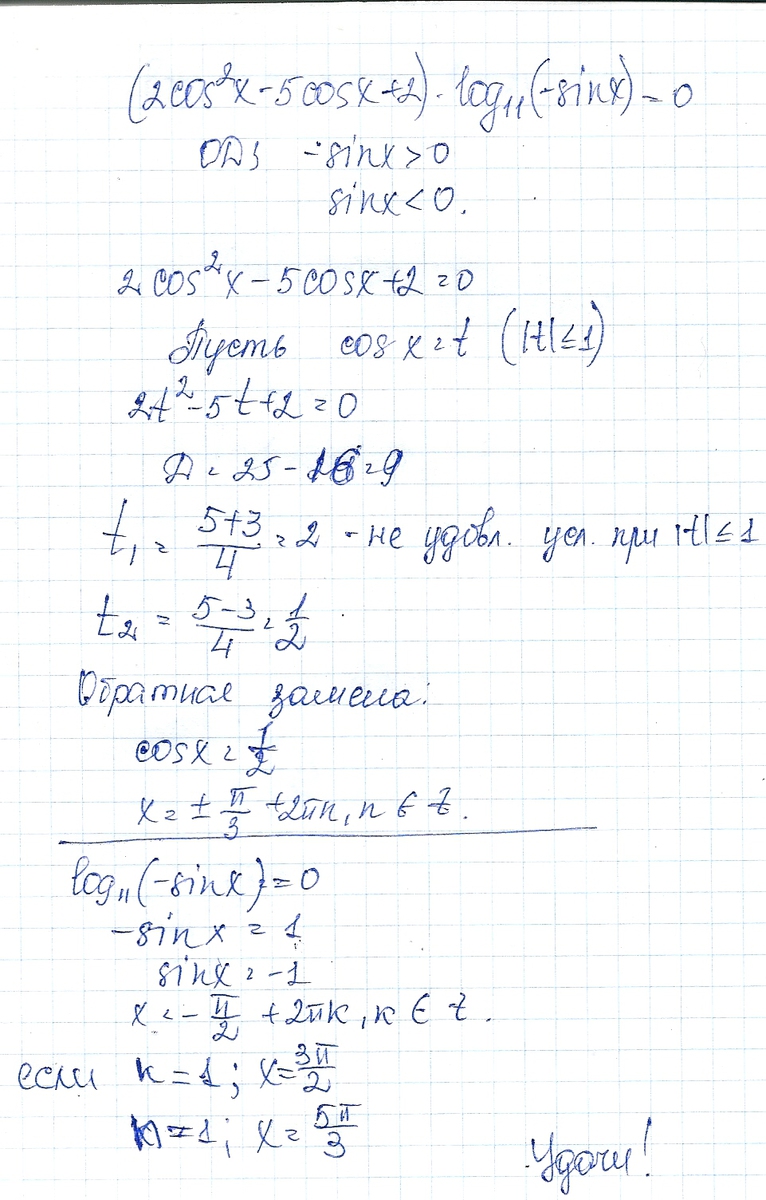 (2cos²x-5cosx+2)·log₁₁(-sinx)=0
ОДЗ -sinx>0
sinx<0.
2cos²x-5cosx+2=0
Пусть cosx=t (|t|≤1)
2t²-5t+2=0
Д=25-16=9
t₁=(5+3)/4=2 - не удовл. усл. при |t|≤1
t₂=(5-3)/4=1/2
Обратная замена:
cosx=1/2
x=±π/3+2πn, n∈Z.
log₁₁(-sinx)=0
-sinx=1
sinx=-1
x=-π/2+2πk, k∈Z.
если k=1; x=3π/2
n=1; x=5π/3
Удачи!